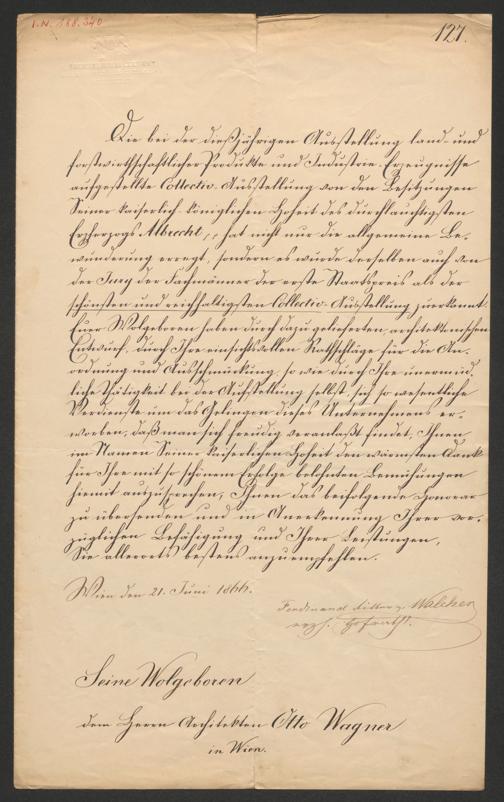 I.N. 188.340
127.
Die bei der dießjährigen Ausstellung land- und
forstwirthschaftlicher Produkte und Industrie-Erzeugnisse
aufgestellte Collectiv-Ausstellung von den Besitzungen
Seiner kaiserlich königlichen Hoheit des durchlauchtigsten
Erzherzogs Albrecht, hat nicht nur die allgemeine Be-
wunderung erregt, sondern es wurde derselben auch von
der Jury der Fachmänner der erste Staatspreis als der
schönsten und reichhaltigsten Collectiv-Ausstellung zuerkannt.
Euer Wolgeboren haben durch dazu gelieferten architektonischen
Entwurf, durch Ihre einsichtsvollen Rathschläge für die An-
ordnung und Ausschmückung, so wie durch Ihre unermüd-
liche Thätigkeit bei der Aufstellung selbst, sich so wesentliche
Verdienste um das Gelingen dieses Unternehmens er-
worben, daß man sich freudig veranlaßt findet, Ihnen
im Namen Seiner kaiserlichen Hoheit den wärmsten Dank
für Ihre mit so schönem Erfolge belohnten Bemühungen
hiemit auszusprechen, Ihnen das beifolgende Honorar
zu übersenden und in Anerkennung Ihrer vor-
züglichen Befähigung und Ihrer Leistungen,
Sie allerorts bestens anzuempfehlen.
Wien den 21. Juni 1866.
Ferdinand Ritter v. Walcher
erzh. Hofrath.
Seine Wolgeboren
dem Herrn Architekten Otto Wagner
in Wien.